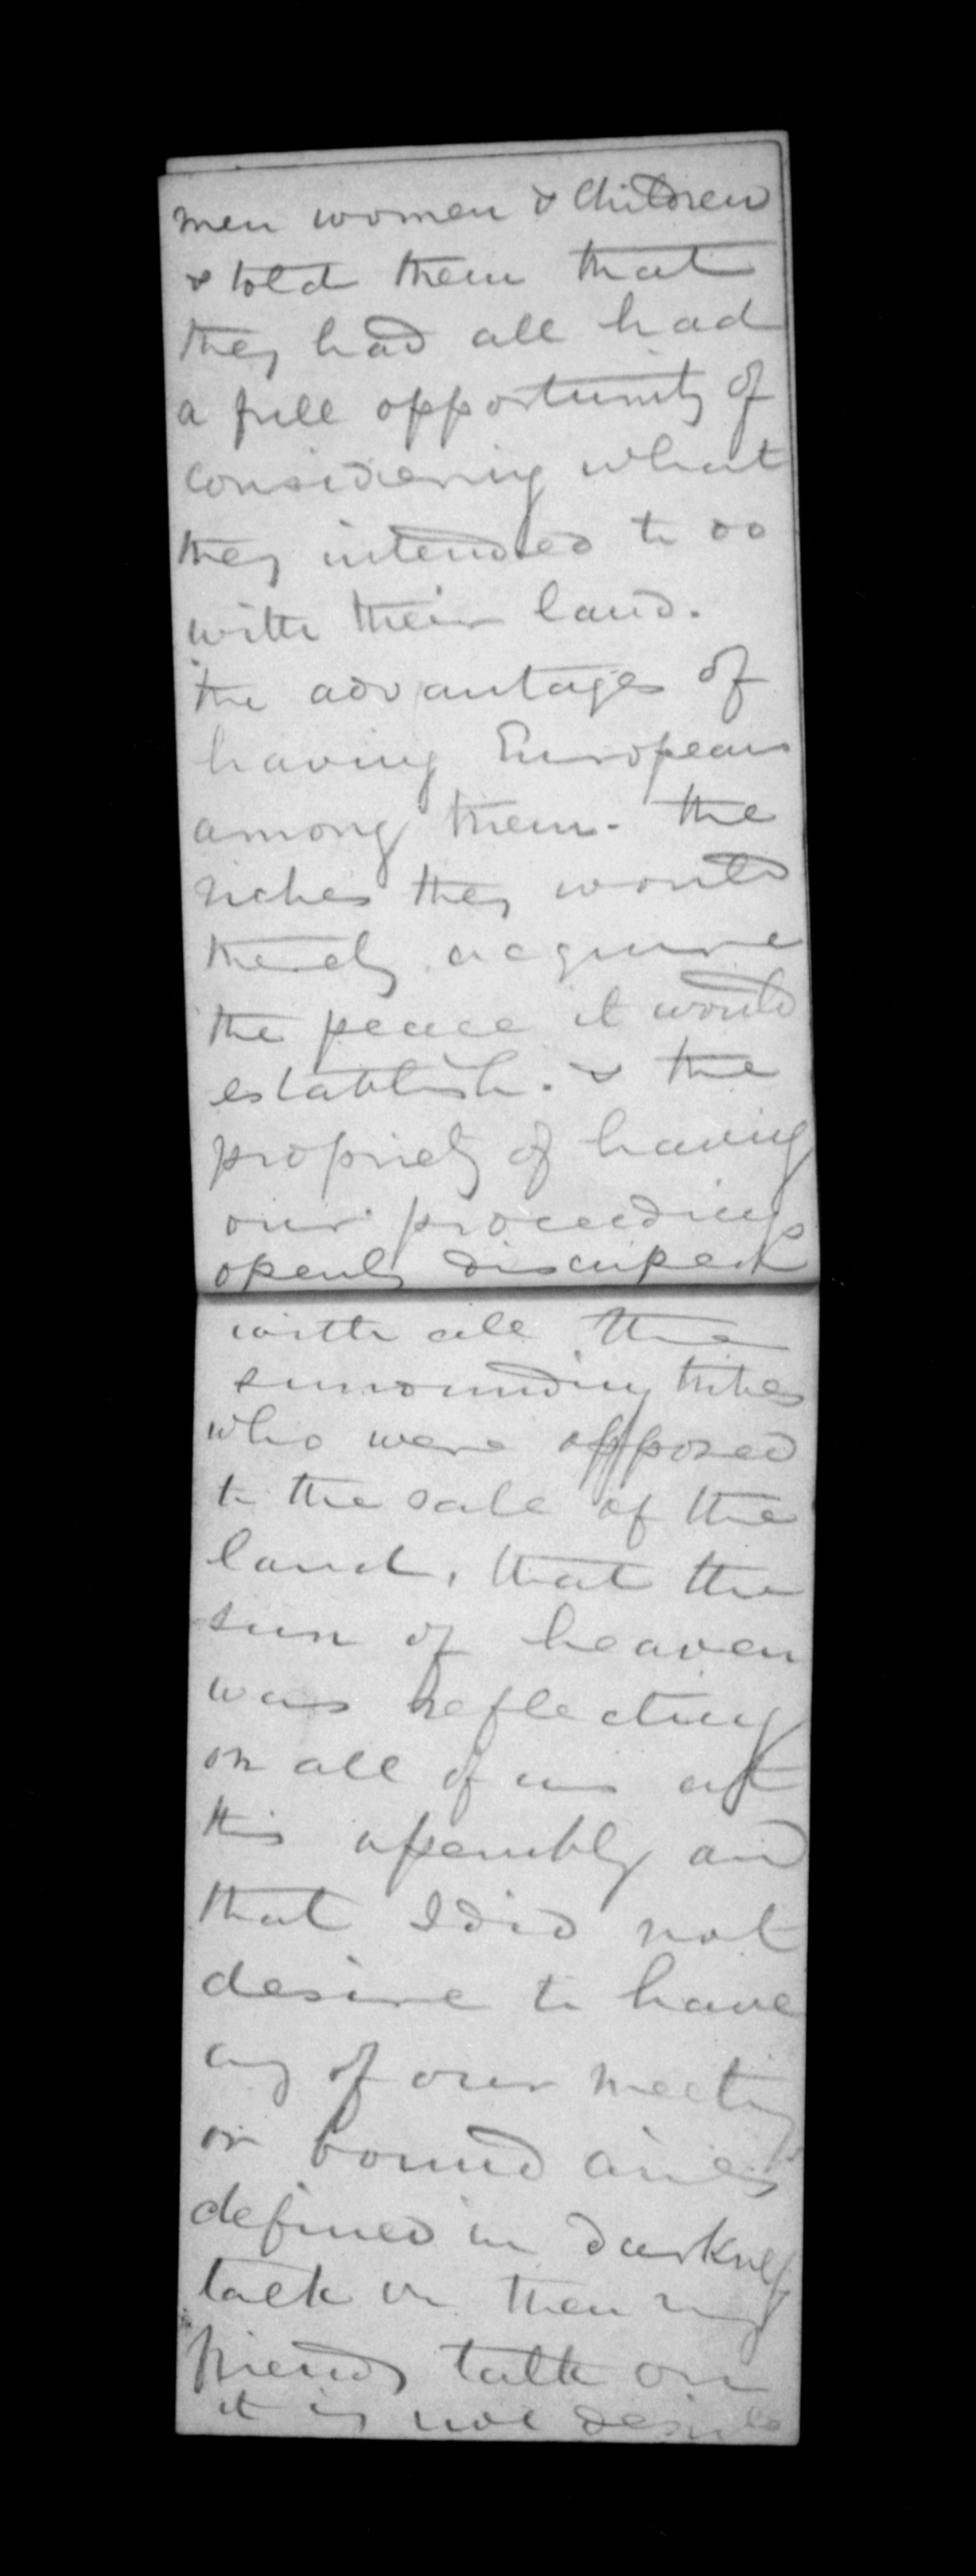 men women & Children
& told them that
they had all had
a full opportunity of
considering what
they intended to do
with their land.
the advantages of
having Europeans
among them - the
riches they would
thereby acquire
the peace it would
establish. & the
propriety of having
our proceedings
openly discussed
with all the
surrounding tribes
who were opposed
to the sale of the
land, that the
sun of heaven
was reflecting
on all of us at
this assembly and
that I did not
desire to have
any of our meetings
or boundaries
defined in darkness
talk on then my
friends talk on
it is not